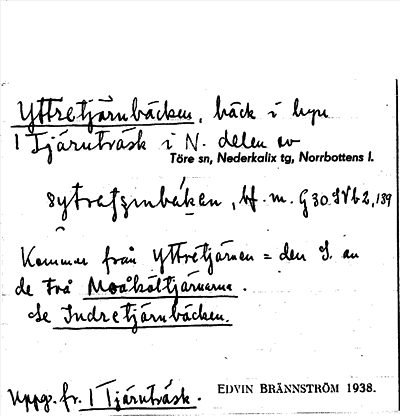 Yttretjärnbäcken, bäck i byn
1 Tjärnträsk i N. delen av
Töre sn, Nederkalix tg, Norrbottens l.
Af. m. G 30.5 Vb 2, 139
Kommer från Yttretjärnen = den S. av
de två Moåhåltjärnarna.
Se Indretjärnbäcken.
Uppg. fr. 1 Tjärnträsk.
EDVIN BRÄNNSTRÖM 1938.